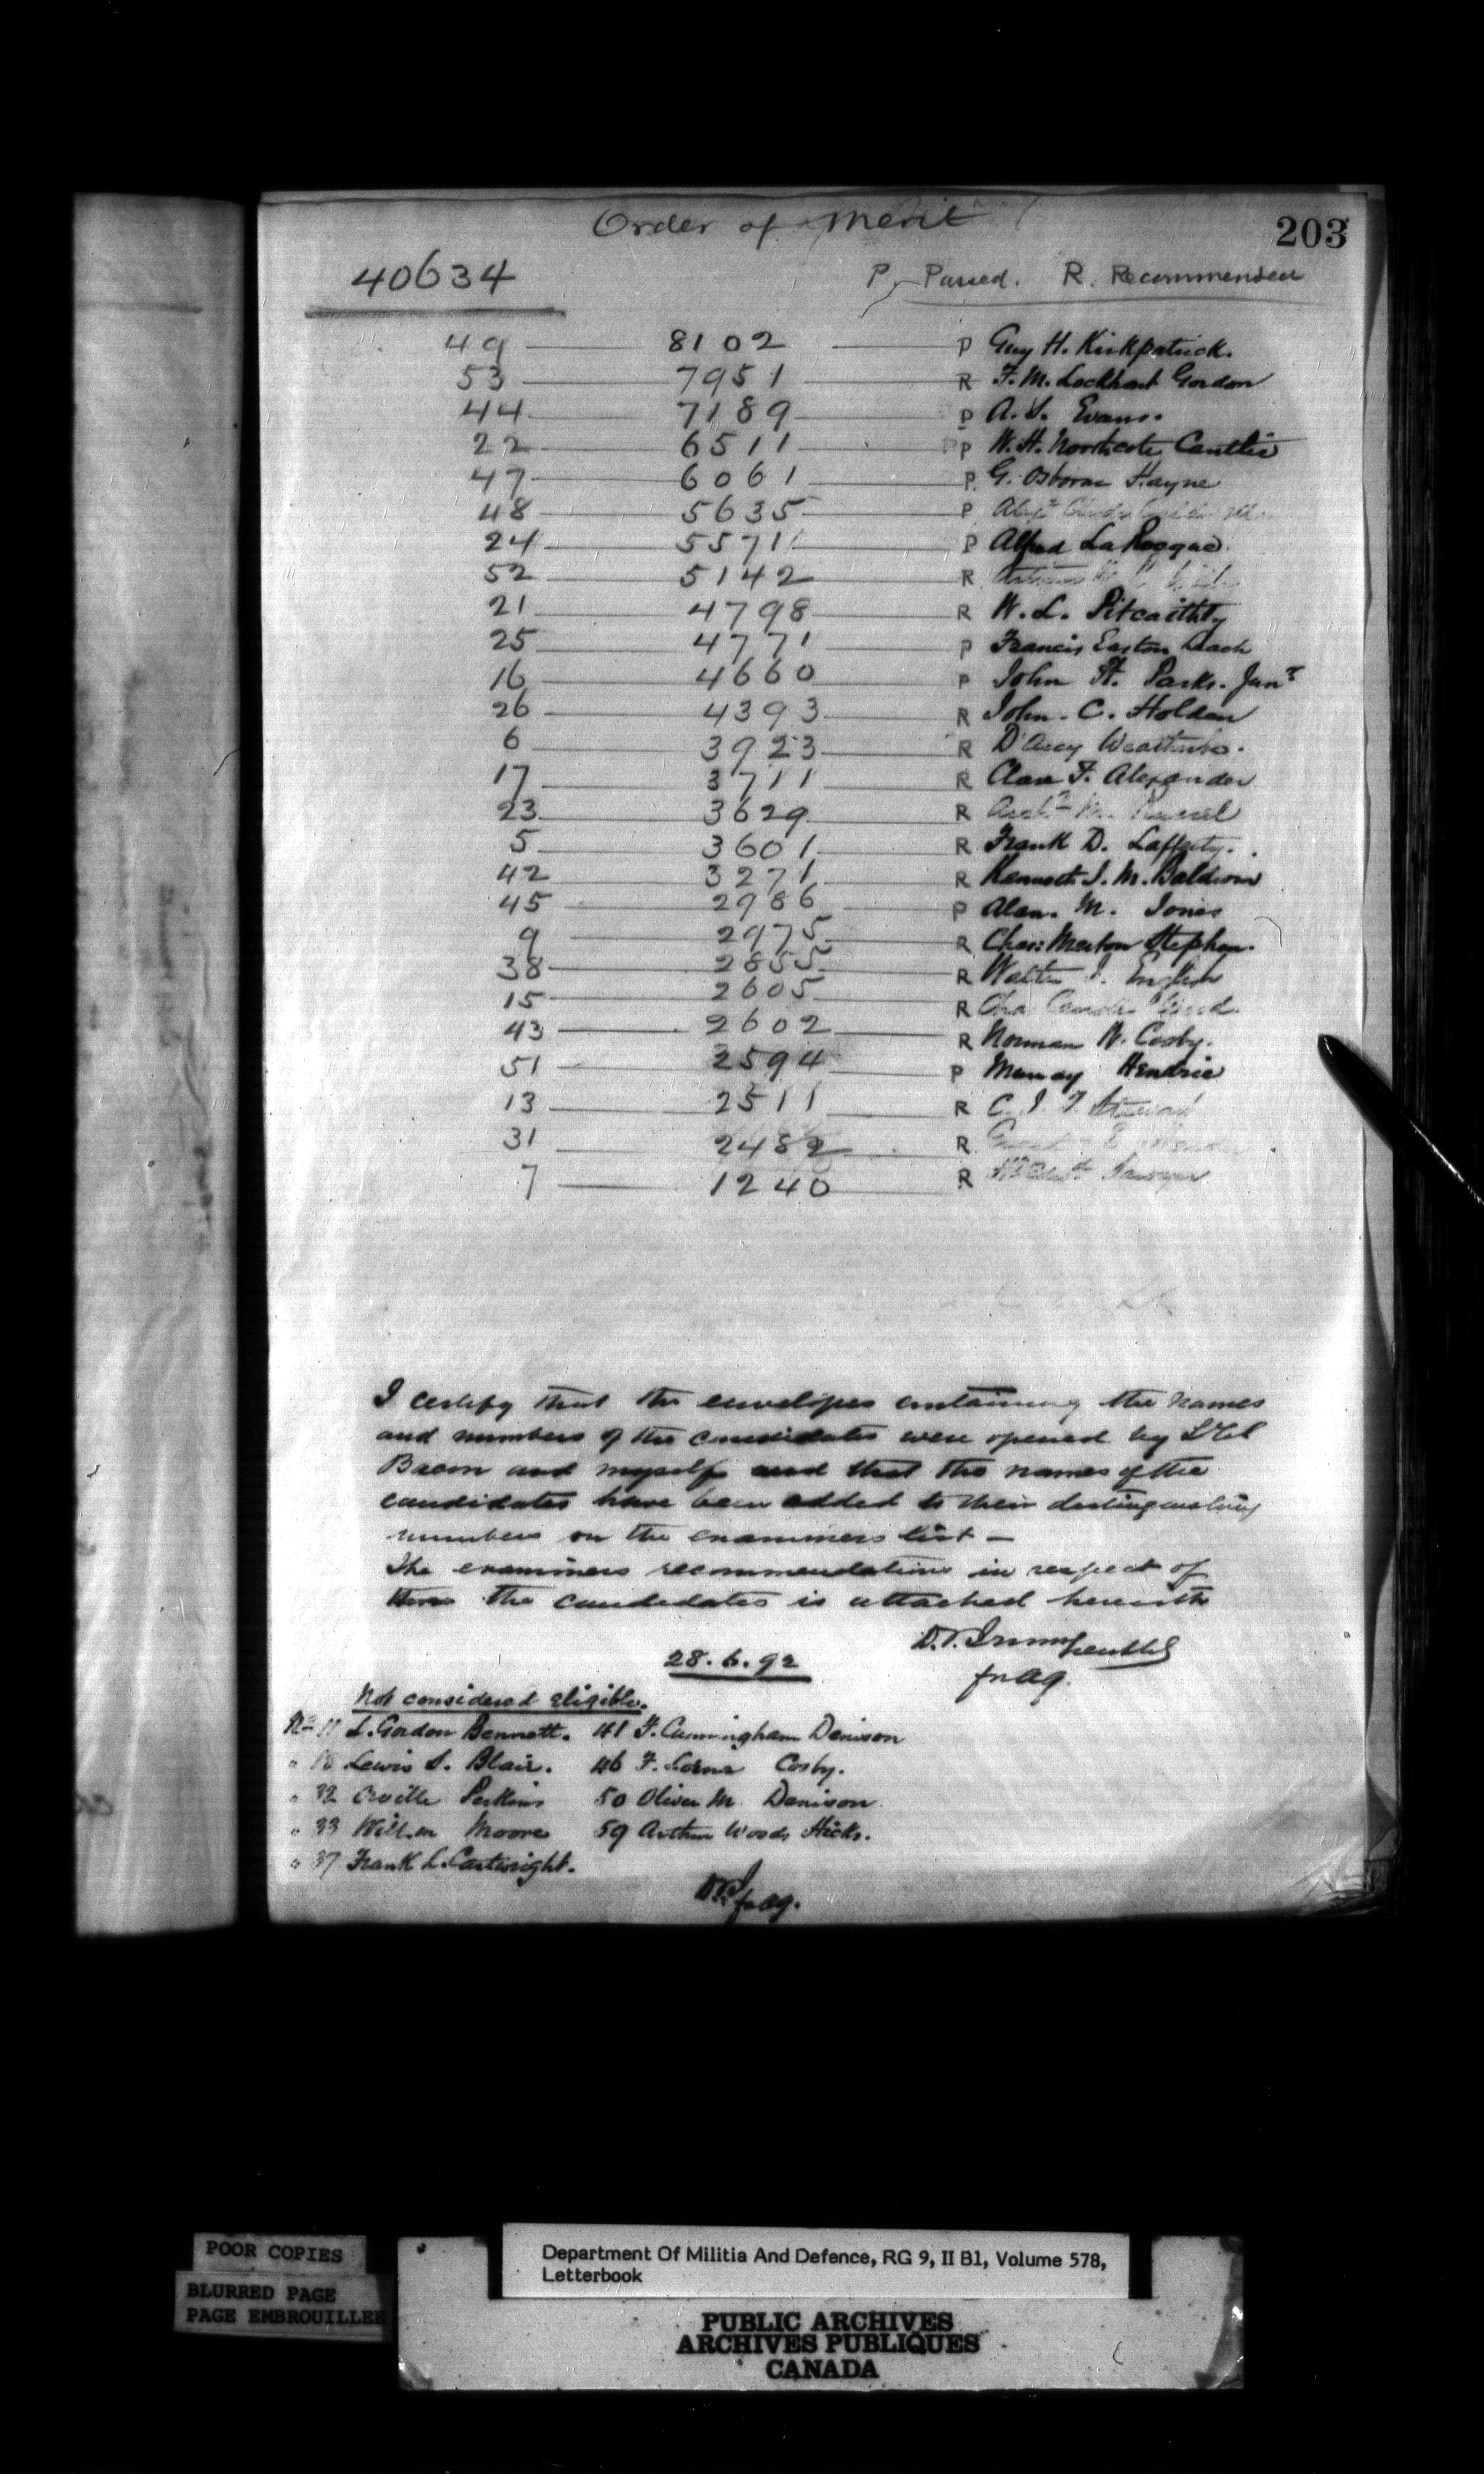 Order of Merit
203
40634
P. Passed. R. Recommended
49 8102 P Guy H. Kirkpatrick.
53 7951 R F. M. Lockhart Gordon
44 7189 P A. S. Evans.
22 6511 P W. H. Northcote Cantlie
47 6061 P. G. Osborne Hayne
48 5635 P
24 5571 P Alfred LaRocque
52 5142 R
21 4798 R W. L. Pitcaithly
25 4771 P Francis Easton Leach
16 4660 P John H. Parks. Junr
26 4393 R John. C. Holden
6 3923 R D'Arcy
17 3711 R F. Alexander
23 3629 R M.
5 3601 R Frank D. Lafferty.
42 3271 R Kenneth J. M. Baldwin
45 2986 P Alan. M. Jones
9 2975 R Chas: Merton Stephen.
38 2855 R Walter J. English
15 2605 R
43 2602 R Norman W. Cosby.
51 2594 P Murray Hendrie
13 2511 R C. J. T. Stewart
31 2482 R
7 1240 R Sawyer
I certify that the envelopes containing the names
and numbers of the candidates were opened by Lt Col
Bacon and myself and that the names of the
candidates have been added to their distinguishing
numbers on the examiners list –
The examiners recommendations in respect of
the candidates is attached herewith
28.6.92
for AG.
Not considered eligible.
No 11 L. Gordon Bennett. 41 F. Cunningham Denison
" 18 Lewis S. Blair. 46 F. Lorne Cosby.
" 32 Orville Perkins 50 Oliver M. Denison.
" 33 Moore 59 Arthur Woods Hicks.
" 37 Frank L. Cartwright.
for AG.
POOR COPIES
BLURRED PAGE
PAGE EMBROUILLEE
Department Of Militia And Defence, RG 9, II B1, Volume 578,
Letterbook
PUBLIC ARCHIVES
ARCHIVES PUBLIQUES
CANADA